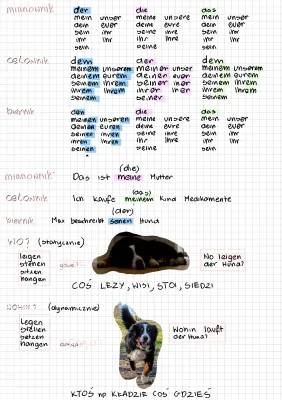 mianownik der die das
mein unser meine unsere mein unser
dein euer deine eure dein euer
sein ihr seine ihre sein ihr
ihr Ihr ihre Ihre ihr Ihr
sein seine sein
celownik dem der dem
meinem unserem meiner unserer meinem unserem
deinem eurem deiner eurer deinem eurem
seinem ihrem seiner ihrer seinem ihrem
ihrem Ihrem ihrer Ihrer ihrem Ihrem
seinem seiner seinem
biernik den die das
meinen unseren meine unsere mein unser
deinen euren deine eure dein euer
seinen ihren seine ihre sein ihr
ihren Ihren ihre Ihre ihr Ihr
seinen seine sein
(die)
mianownik Das ist meine Mutter
(das)
celownik Ich kaufe meinem Kind Medikamente
(der)
biernik Max beschreibt seinen Hund
WO? (statycznie)
liegen
stehen
sitzen
hängen
Wo liegen
der Hund?
COŚ LEŻY, WISI, STOI, SIEDZI
(dynamicznie)
legen
stellen
setzen
hängen
Wohin läuft
der Hund?
KTOŚ np KŁADZIE COŚ GDZIEŚ